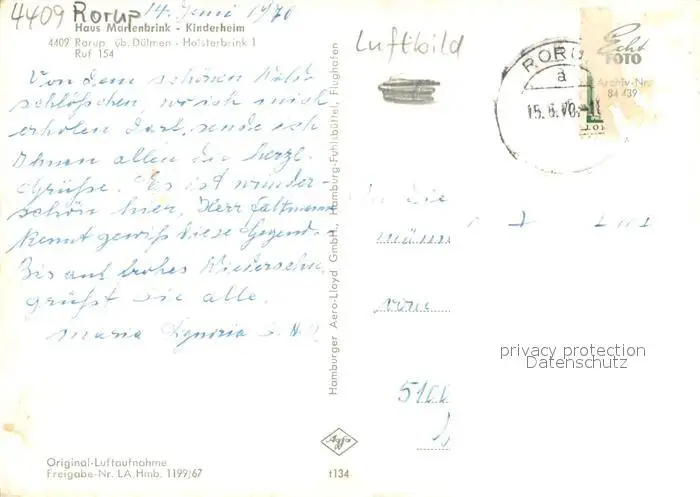 4409 Rorup
14. Juni 1970
Haus Marienbrink - Kinderheim
4409 Rorup üb. Dülmen - Holsterbrink 1
Ruf 154
Von dem schönen Wald-
schlößchen, wo ich mich
erholen darf, sende ich
Ihnen allen die herzl.
Grüße. Es ist wunder-
schön hier, Herr
kennt gewiß diese Gegend.
Bis auf frohes Wiedersehn
grüßt Sie alle.
Maria
Original-Luftaufnahme
Freigabe-Nr. LA Hmb. 1199/67
Hamburger Aero-Lloyd GmbH., Hamburg-Fuhlsbüttel, Flughafen
Luftbild
RORU
a
15.6.70.-11
Echt
FOTO
Archiv-Nr.
84 439
An die
vom
privacy protection
Datenschutz
Agfa
t134